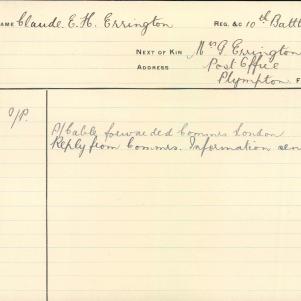 NAME Claude E. H. Errington REG. &C 10th Battl
NEXT OF KIN Mrs G Errington
ADDRESS Post Office
Plympton
O/P.
P/Cable forwarded Commrs London
Reply from Commrs. Information sen